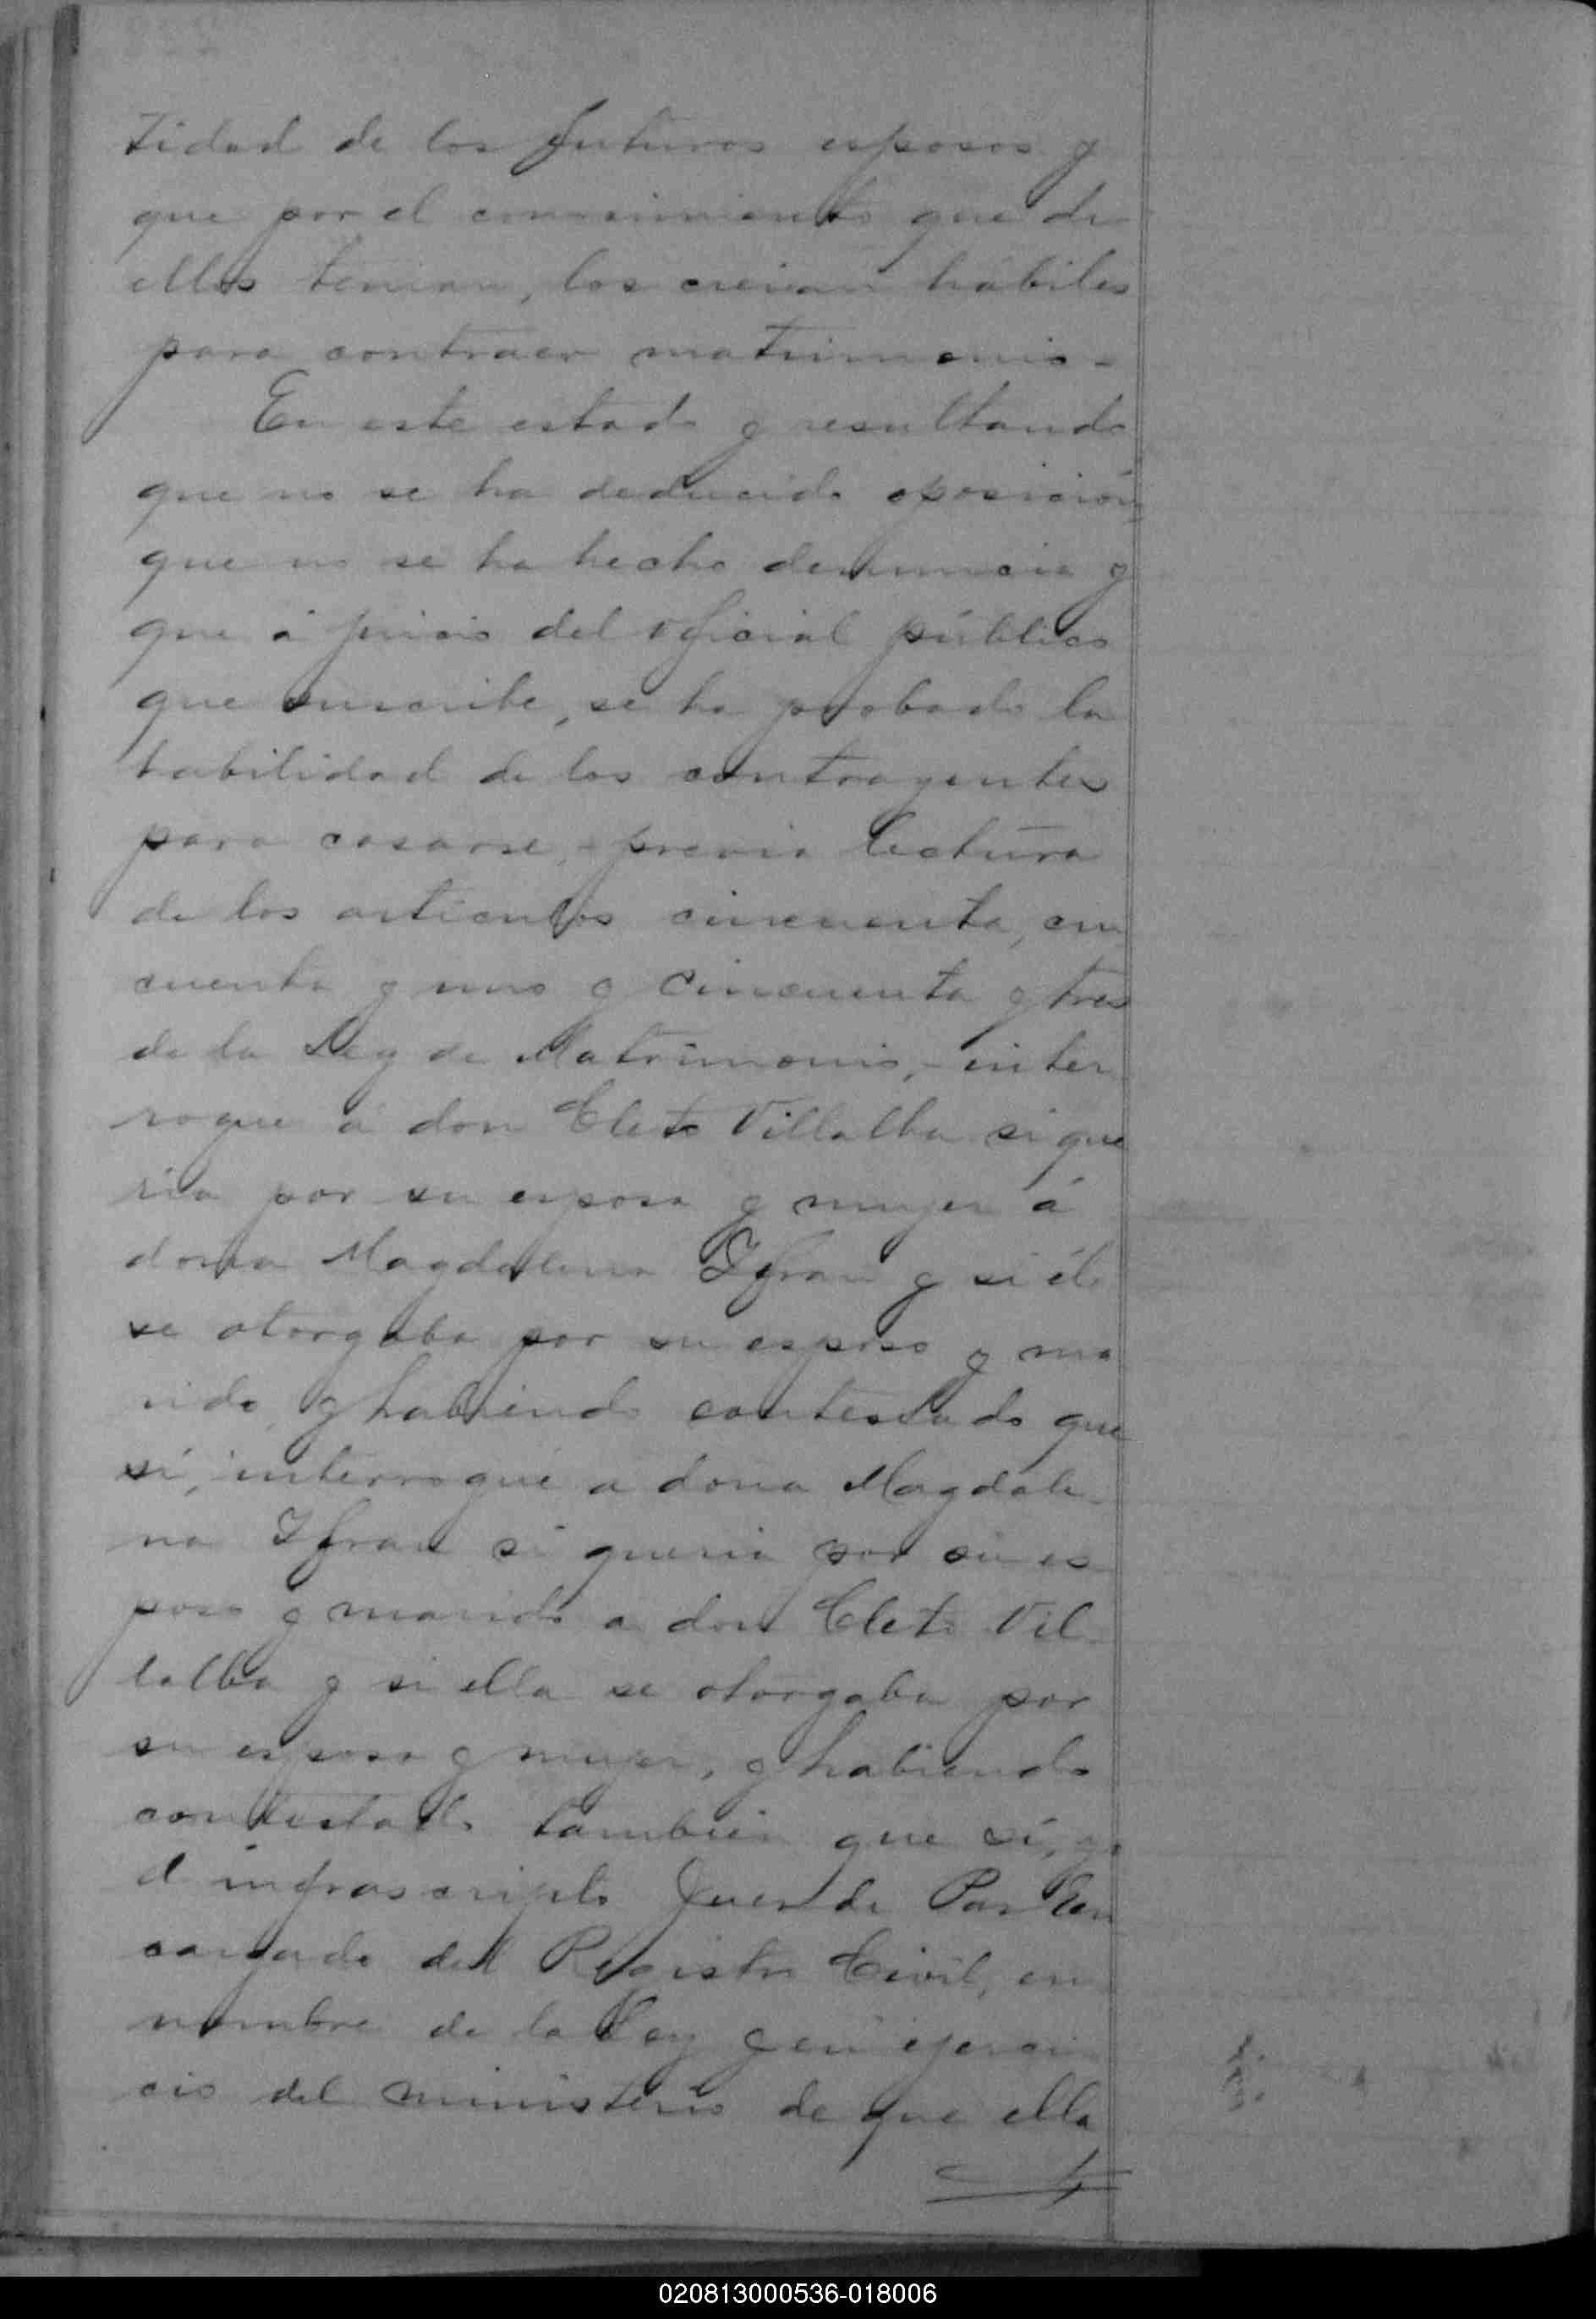 tidad de los futuros esposos y
que por el conocimiento que de
ellos tenian, los creian hábiles
para contraer matrimonio-
En este estado y resultando
que no se ha deducido oposición,
que no se ha hecho denuncia y
que á juicio del oficial público
que suscribe, se ha probado la
habilidad de los contrayentes
para casarse,- previa lectura
de los artículos cincuenta, cin
cuenta y uno y cincuenta y tres
de la Ley de Matrimonio,- inter
rogue á don Cleto Villalba si que
ria por su esposa y mujer á
doña Magdalena Ifran y si él
se otorgaba por su esposo y ma
rido, y habiendo contestado que
sí, interrogué a dona Magdale-
na Ifran si queria por su es
poso y marido a don Cleto Vil-
lalba y si ella se otorgaba por
su esposa y mujer, y habiendo
contestado tambien que sí, yo
el infrascripto Juez de Paz En
cargado del Registro Civil, en
nombre de la Ley y en ejerci
cio del ministerio de que ella
020813000536-018006